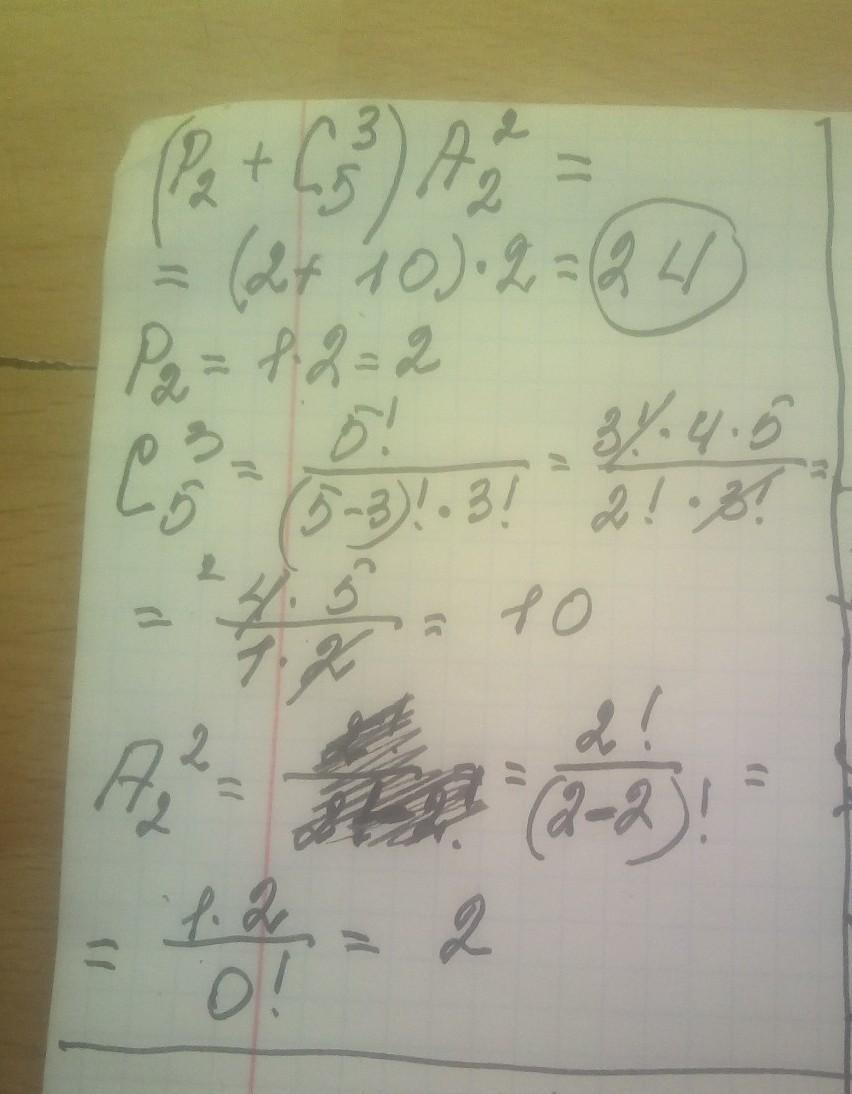 (P₂ + C₅³) A₂² =
= (2 + 10) · 2 = 24
P₂ = 1 · 2 = 2
C₅³ = 5! / ((5-3)! · 3!) = (3! · 4 · 5) / (2! · 3!) =
= ² (4 · 5) / (1 · 2) = 10
A₂² = = 2! / (2-2)! =
= (1 · 2) / 0! = 2